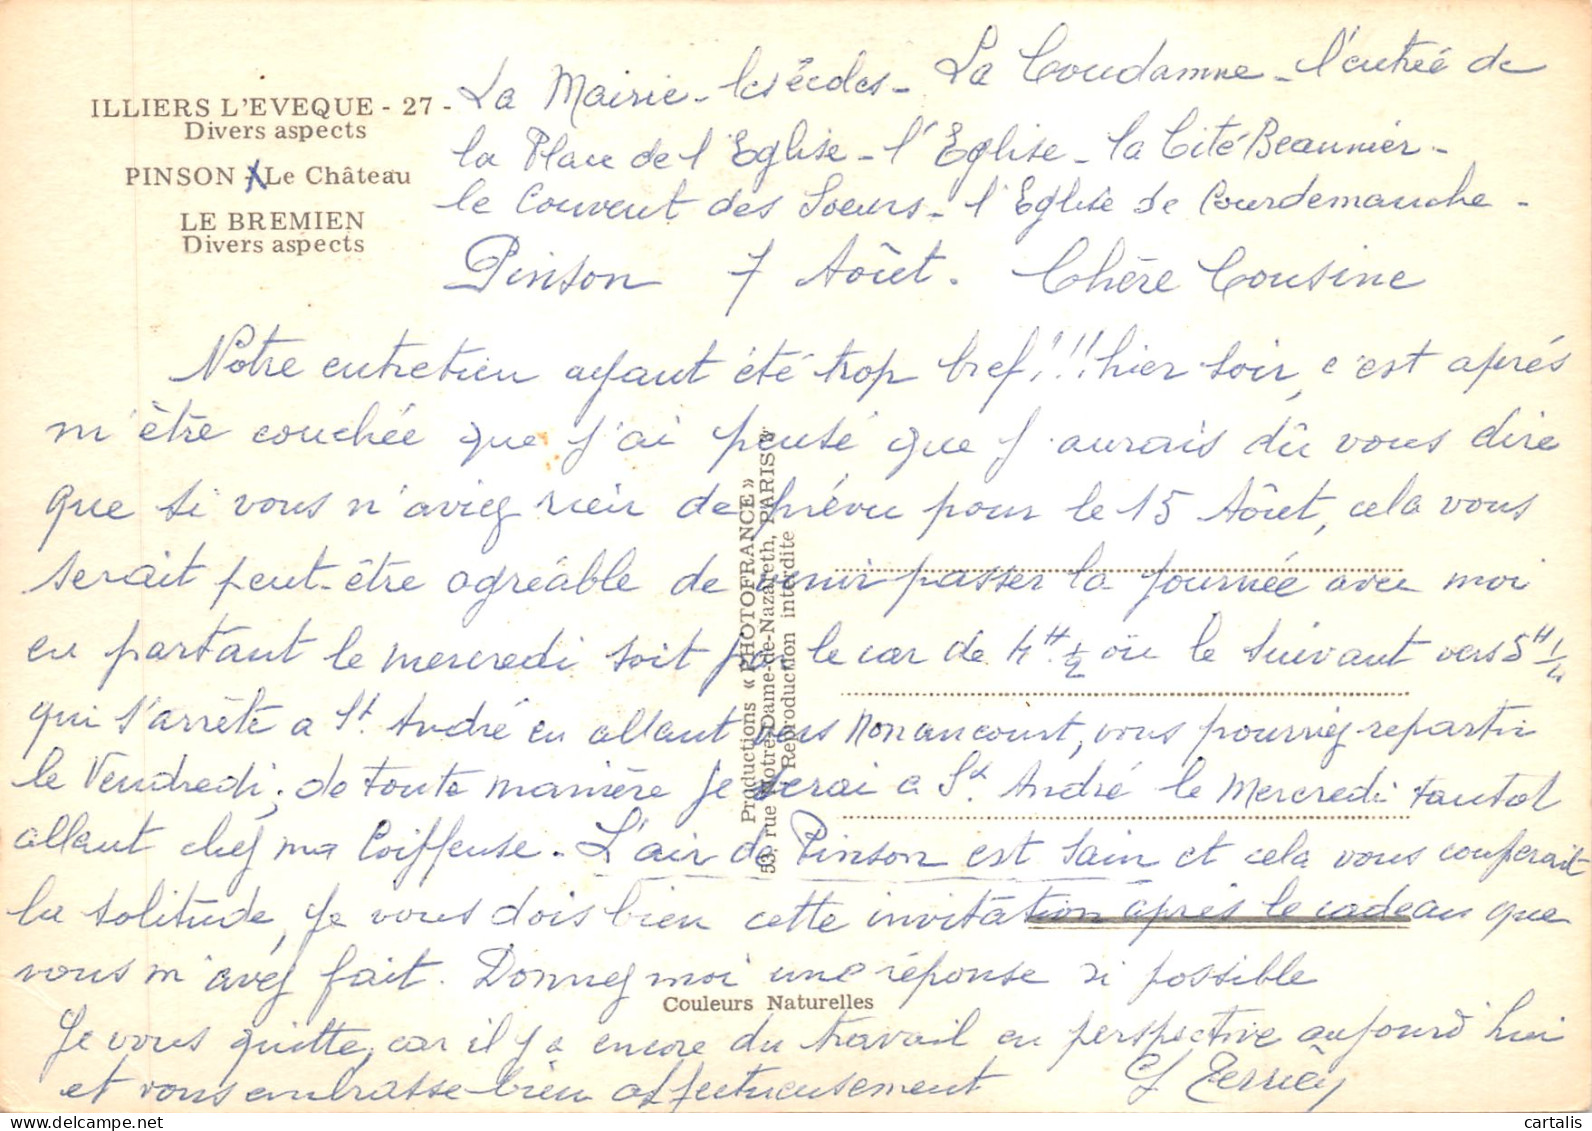 ILLIERS L'EVEQUE - 27 -
Divers aspects
PINSON - Le Château
LE BREMIEN
Divers aspects
La Mairie - les écoles - La Coudanne - l'entrée de
la Place de l'Eglise - l'Eglise - la Cité Beaunier -
le Couvent des Soeurs - l'Eglise de Courdemanche -
Pinson 7 Aôut. Chère Cousine
Notre entretien ayant été trop bref!!! hier soir, c'est après
m'être couchée que j'ai pensé que j'aurais dû vous dire
que si vous n'aviez rien de prévu pour le 15 Aôut, cela vous
serait peut-être agréable de venir passer la journée avec moi
en partant le mercredi soit par le car de 4H 1/2 où le suivant vers 5H 1/4
qui s'arrête a St André en allant vers Nonancourt, vous pourriez repartir
le Vendredi; de toute manière je serai a St. André le Mercredi tantot
allant chez ma Coiffeuse - L'air de Pinson est sain et cela vous couperait
la solitude, je vous dois bien cette invitation après le cadeau que
vous m'avez fait. Donnez moi une réponse si possible
Je vous quitte, car il y a encore du travail en perspective aujourd'hui
et vous embrasse bien affectueusement
Productions « PHOTOFRANCE »
53, rue Notre-Dame-de-Nazareth, PARIS
Reproduction interdite
Couleurs Naturelles
www.cartalis.com
cartalis